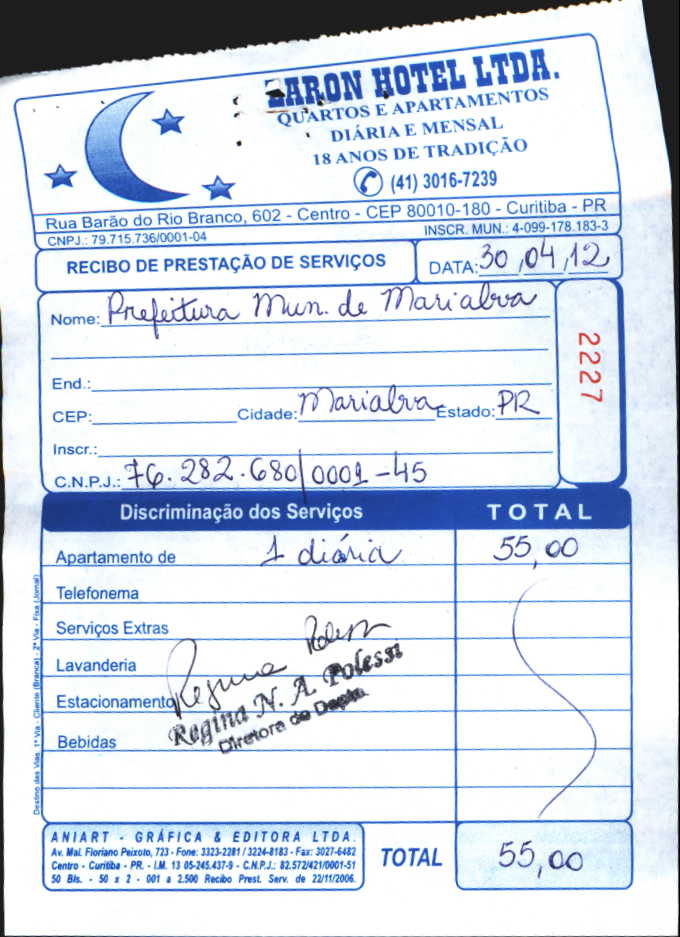 BARON HOTEL LTDA.
QUARTOS E APARTAMENTOS
DIÁRIA E MENSAL
18 ANOS DE TRADIÇÃO
(41) 3016-7239
Rua Barão do Rio Branco, 602 - Centro - CEP 80010-180 - Curitiba - PR
CNPJ.: 79.715.736/0001-04 INSCR. MUN.: 4-099-178.183-3
RECIBO DE PRESTAÇÃO DE SERVIÇOS DATA: 30,04,12
Nome: Prefeitura Mun. de Marialva
2227
End.:
CEP: Cidade: Marialva Estado: PR
Inscr.:
C.N.P.J.: 76.282.680/0001-45
Discriminação dos Serviços TOTAL
Apartamento de 1 diária 55,00
Telefonema
Serviços Extras
Lavanderia
Estacionamento
Bebidas
Regina Polessi
Regina N. A. Polessi
Diretora de Depto.
Destino das Vias. 1ª Via - Cliente (Branca) - 2ª Via - Fixa (Jornal)
ANIART - GRÁFICA & EDITORA LTDA.
Av. Mal. Floriano Peixoto, 723 - Fone: 3323-2281 / 3224-8183 - Fax: 3027-6482
Centro - Curitiba - PR. - I.M. 13 05-245.437-9 - C.N.P.J.: 82.572/421/0001-51
50 Bls. - 50 x 2 - 001 a 2.500 Recibo Prest. Serv. de 22/11/2006.
TOTAL 55,00